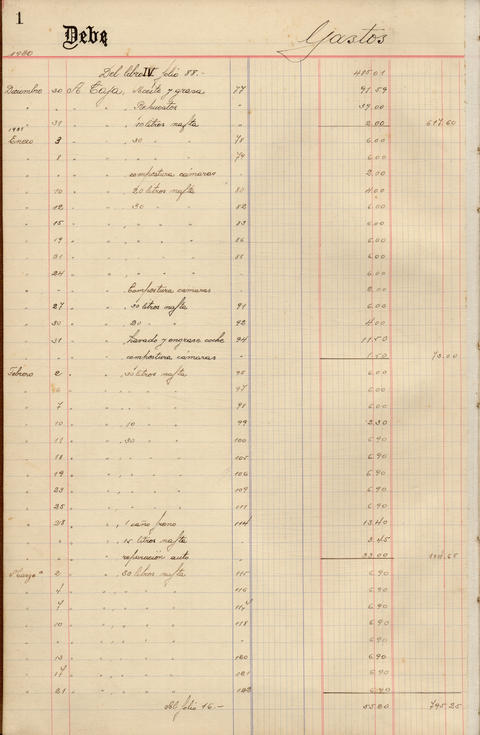 1
Debe Gastos
1930
Del libro IV folio 88.- 485.01
Diciembre 30 A Caja, Aceite y grasa 77 91.59
" " " " Repuestos " 39.00
" 31 " " 10 litros nafta " 2.00 617.60
1931
Enero 3 " " 30 " " 78 6.00
" 8 " " " " " 79 6.00
" " " " compostura cámaras " 2.00
" 10 " " 20 litros nafta 80 4.00
" 12 " " 30 " " 82 6.00
" 15 " " " " " 83 6.00
" 19 " " " " " 86 6.00
" 21 " " " " " 88 6.00
" 24 " " " " " " 6.00
" " " " Compostura cámaras " 2.00
" 27 " " 30 litros nafta 91 6.00
" 30 " " 20 " " 92 4.00
" 31 " " Lavado y engrase coche 94 11.50
" " " " compostura cámaras " 1.50 73.00
Febrero 2 " " 30 litros nafta 95 6.00
" " " " " " 97 6.00
" 7 " " " " " 98 6.00
" 10 " " 10 " " 99 2.30
" 11 " " 30 " " 100 6.90
" 18 " " " " " 105 6.90
" 19 " " " " " 106 6.90
" 23 " " " " " 109 6.90
" 25 " " " " " 111 6.90
" 28 " " 1 caño freno 114 13.40
" " " " 15 litros nafta " 3.45
" " " " reparación auto " 33.00
Marzo 2 " " 30 litros nafta 115 6.90
" 4 " " " " " 116 6.90
" 7 " " " " " 117 6.90
" 10 " " " " " 118 6.90
" " " " " " " " 6.90
" 13 " " " " " 120 6.90
" 17 " " " " " 121 6.90
" 21 " " " " " 122 6.90
Al folio 16.- 55.20 795.25